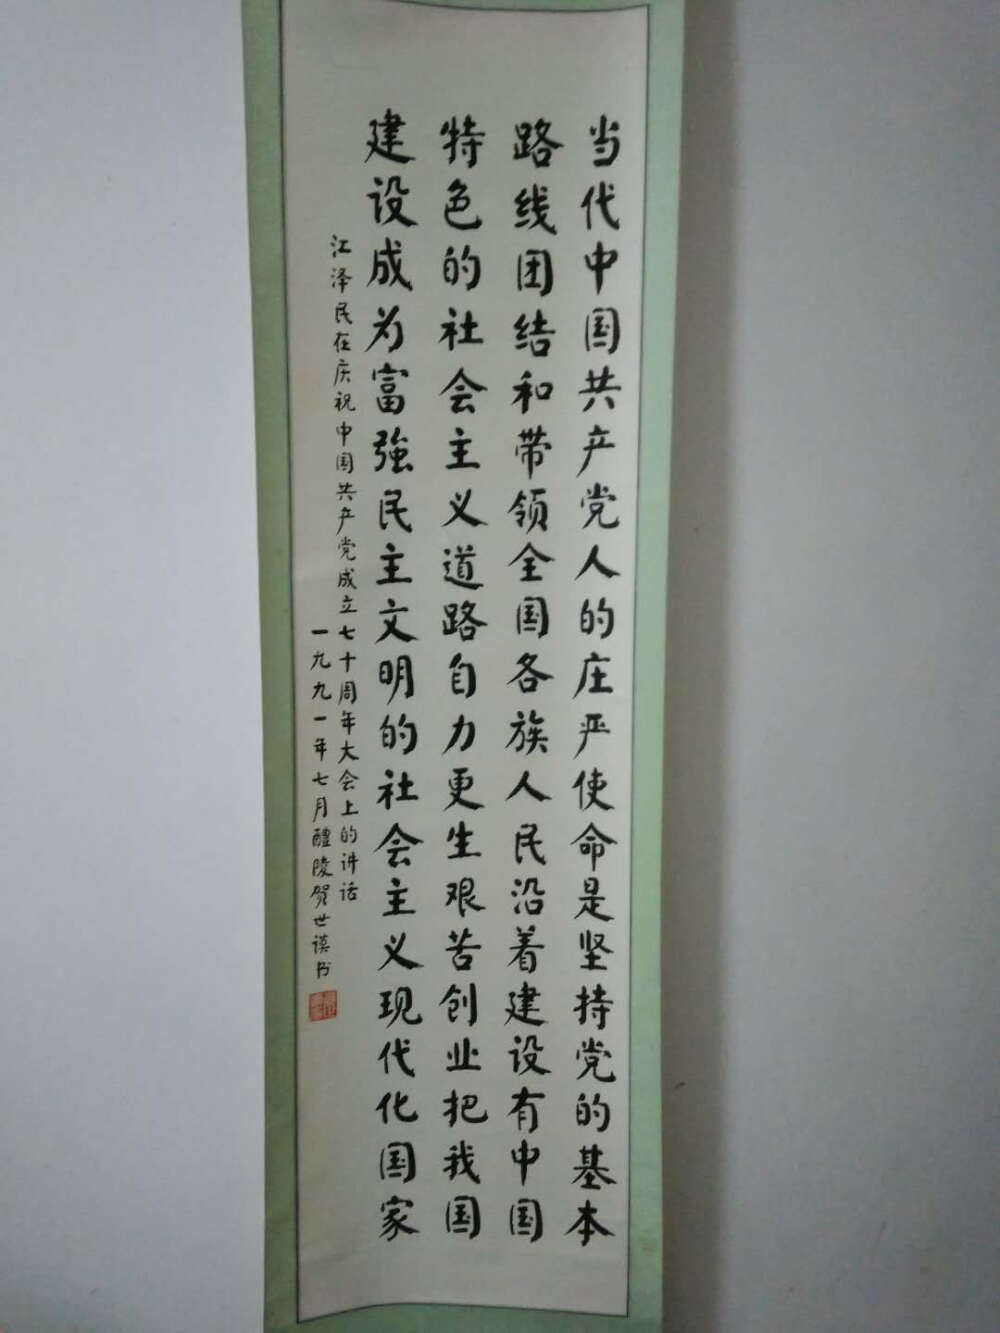 当代中国共产党人的庄严使命是坚持党的基本
路线团结和带领全国各族人民沿着建设有中国
特色的社会主义道路自力更生艰苦创业把我国
建设成为富強民主文明的社会主义现代化国家
江泽民在庆祝中国共产党成立七十周年大会上的讲话
一九九一年七月醴陵贺世谟书